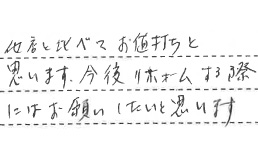 他店と比べて お値打ちと
思います。今後 リホームする際
にはお願いしたいと思います